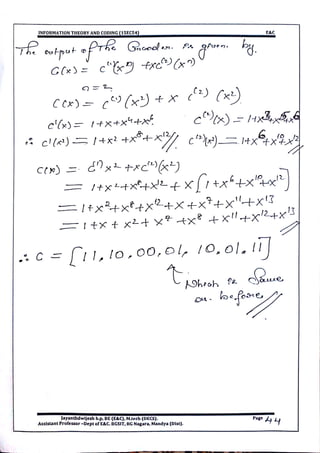 INFORMATION THEORY AND CODING (15EC54) E&C
The output of The Encoder is given by
G(x) = c⁽¹⁾(xⁿ) + x c⁽²⁾(xⁿ)
n = 2
C(x) = c⁽¹⁾(x²) + x c⁽²⁾(x²)
c¹(x) = 1+x+x⁴+x⁶ c⁽²⁾(x) = 1+x³+x⁵+x⁶
∴ c¹(x²) = 1+x²+x⁸+x¹² c⁽²⁾(x²) = 1+x⁶+x¹⁰+x¹²
C(x) = c⁽¹⁾x² + x c⁽²⁾(x²)
= 1+x²+x⁸+x¹² + x[1+x⁶+x¹⁰+x¹²]
= 1+x²+x⁸+x¹²+x+x⁷+x¹¹+x¹³
= 1+x+x²+x⁷+x⁸+x¹¹+x¹²+x¹³
∴ C = [11, 10, 00, 01, 10, 01, 11]
Which is Same
as before
Jayanthdwijesh h.p, BE (E&C), M.tech (DECS). Page 44
Assistant Professor –Dept of E&C. BGSIT, BG Nagara, Mandya (Dist).